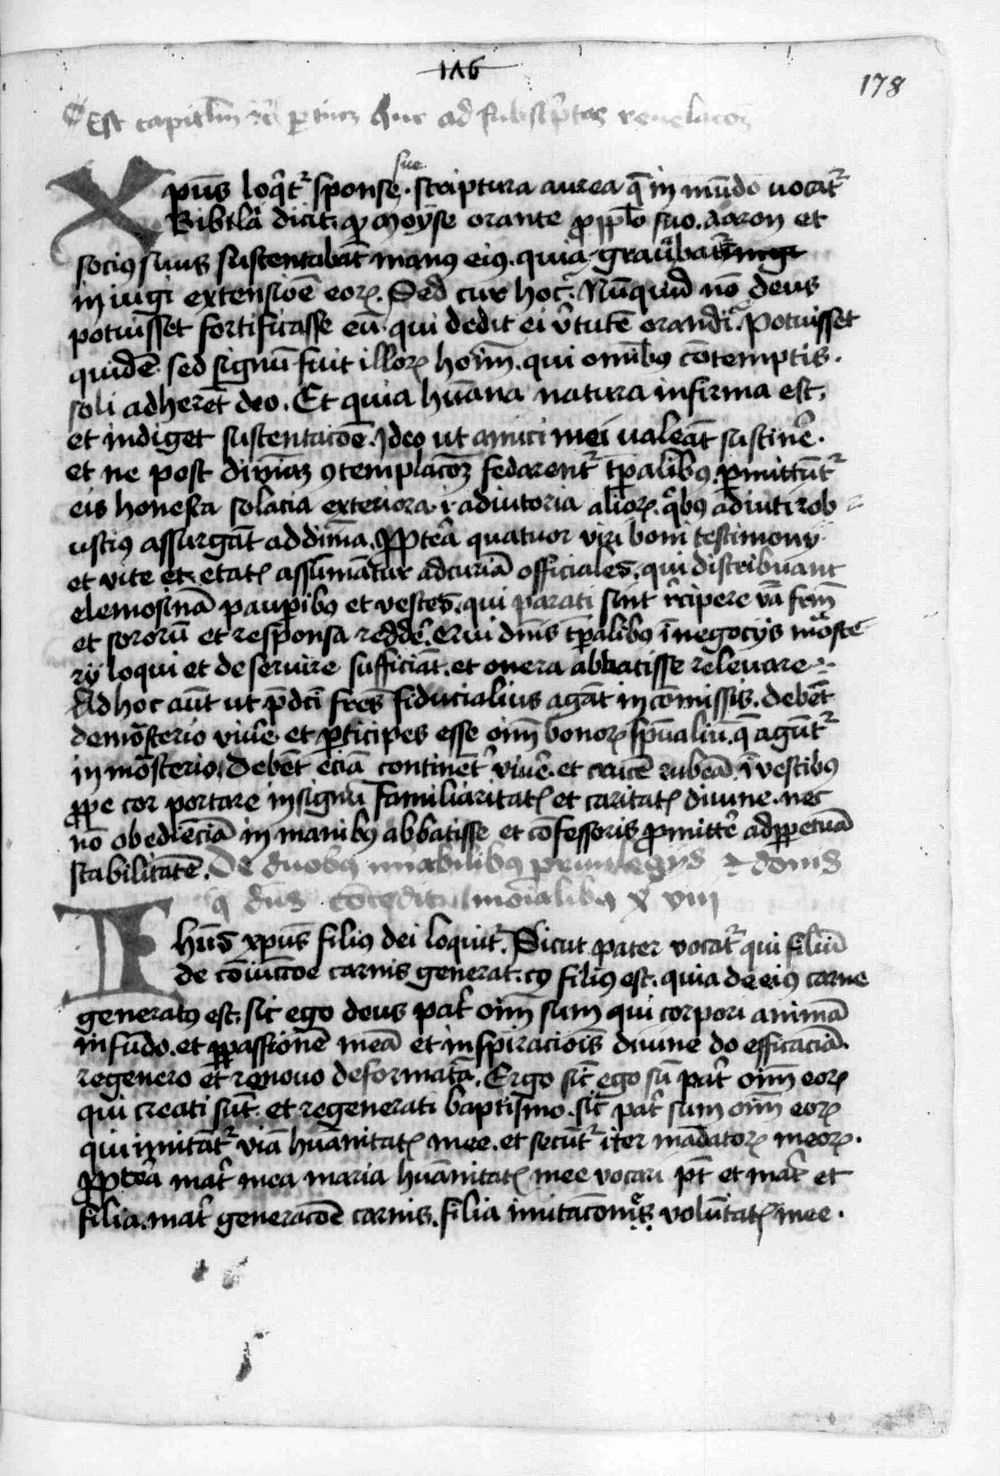 146
178
Est capitlm pertinz huc ad subscptas reuelacoz
Xpūs loqit² sponse sue. scriptura aurea q̄ in mūdo uocat²
Biblia dicit. qp Moyse orante ꝓ pplo suo. Aaron et
socius suus sustentabāt manus eius. quia grauabant²
in iugi extensiōe eorꝝ. Sed cur hoc. Nūquid nō deus
potuisset fortificasse eū. qui dedit ei v̾tutē orandi. Potuisset
quidē. sed signū fuit illorꝝ hoīm. qui omībus cōtemptis.
soli adherēt deo. Et quia hūana natura infirma est.
et indiget sustentacōe. Ideo ut amici mei ualeāt sustinē.
et ne post diuinā ꝯtemplacōꝫ fedarent² tp̄alibus. p̄mittūt²
eis honesta solacia exteriora ⁊ adiutoria aliorꝝ. qbus adiuti rob
ustius assurgāt ad diuīa. Propterea quatuor viri boni testimonij
et vite et etatꝭ assumātur ad curiā officiales. qui distribuant
elemosinā pauꝑibus et vestes. qui parati sint rcipere vba frm
et sororū et responsa reddē. Qui dnīs tp̄alibus ī negocijs mōste
rij loqui et deseruire sufficiāt. et onera abbatisse releuare.
Ad hoc aūt ut p̄dcī fres fiducialius agāt in cōmissis. debēt
de mōsterio viuē. et ꝑticipes esse oīm bonorꝝ spūaliū. q̄ agūt²
in mōsterio. Debēt eciā continent̾ viuē. et crucē rubeā ī vestibus
ꝓpe cor portare in signū familiaritatꝭ et caritatꝭ diuine. nec
nō obediēciā in manibus abbatisse et cōfessoris ꝓmittē ad ꝑpetuā
stabilitatē. De duobus mirabilibus priuilegijs ⁊ donis
q dns cōcedit monialibus x viij
Ihūs xpūs filius dei loquit². Sicut pater vocat² qui filiū
de cōiūccōe carnis generat. et filius est. quia de eius carne
generatus est. sic ego deus pat̾ oīm sum qui corpori animā
infūdo. et ꝑ passionē meā et inspiraciōis diuine do efficaciā.
regenero et renouo deformatā. Ergo sic ego sū pat̾ oīm eorꝝ
qui creati sūt. et regenerati baptismo. sic pat̾ sum oīm eorꝝ
qui imitāt² viā hūanitatꝭ mee. et secūt² iter mādatorꝝ meorꝝ.
Propterea mat̾ mea maria hūanitatꝭ mee vocari pt̄ et mat̾ et
filia. mat̾ generacōe carnis. filia imitacōis voluntatꝭ mee.